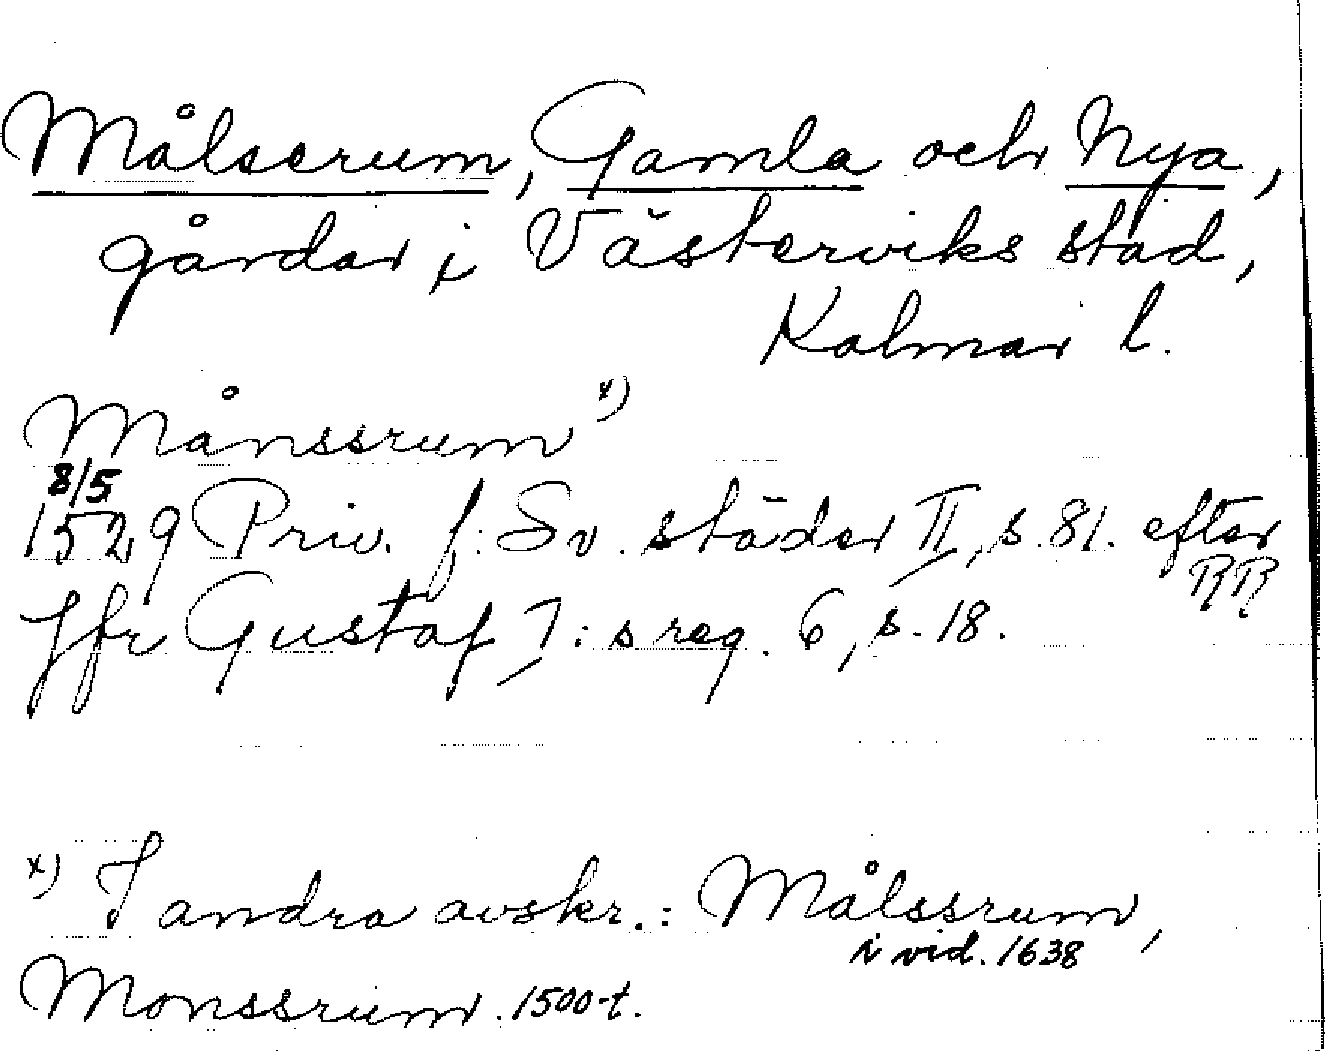 Målserum, Gamla och Nya,
gårdar i Västerviks stad,
Kalmar l.
Månssrum x)
8/5
1529 Priv. f. Sv. städer II, s. 81. efter
RR
Jfr Gustaf I:s reg. 6, s. 18.
x) I andra avskr.: Målssrum,
i vid. 1638
Monssrum. 1500-t.